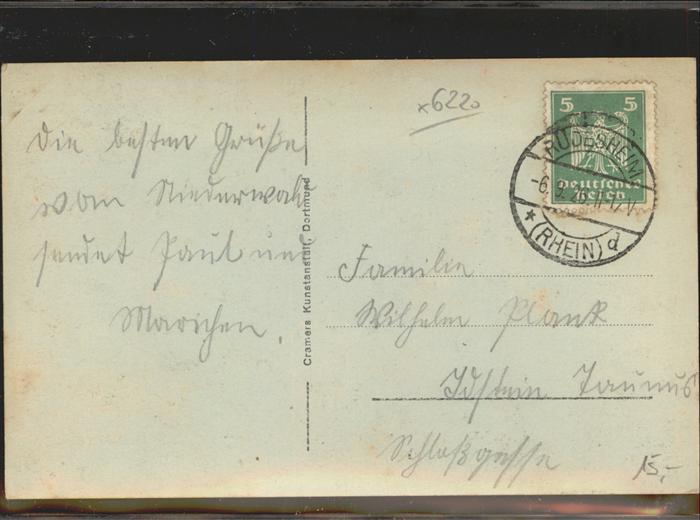 *6220
Die besten Grüße
vom Niederwald
sendet Paul und
Marichen.
Cramers Kunstanstalt, Dortmund
5 5
Deutsches
Reich
RÜDESHEIM
-6.9.26. 11-12V.
* (RHEIN) d
Familie
Wilhelm Plank
Idstein Taunus
Schloßgasse
15,-